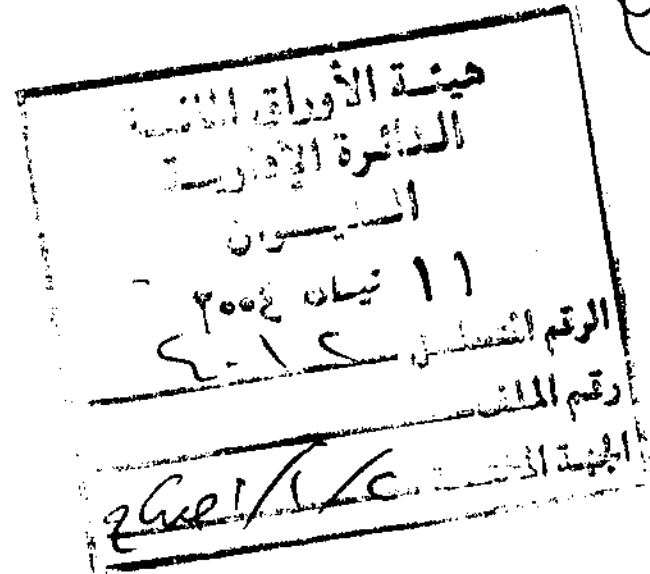 هيئة الأوراق المالية
الدائرة الإدارية
الديوان
١١ نيسان ٢٠٠٤
الرقم المتسلسل
رقم الملف
الجهة المختصة